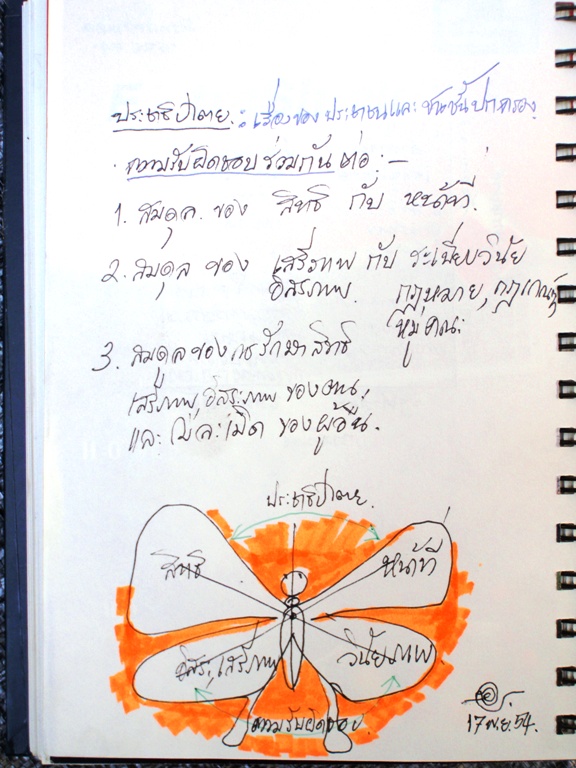 ประชาธิปไตย : เรื่องของ ประชาชนและ ชนชั้นปกครอง.
ความรับผิดชอบ ร่วมกัน ต่อ :-
1. สมดุล ของ สิทธิ กับ หน้าที่.
2. สมดุล ของ เสรีภาพ กับ ระเบียบวินัย
อิสรภาพ. กฎหมาย, กฎเกณฑ์
หมู่คณะ
3. สมดุลของการรักษาสิทธิ
เสรีภาพ, อิสระภาพ ของตน,
และ ไม่ละเมิด ของผู้อื่น.
ประชาธิปไตย.
สิทธิ หน้าที่
อิสระ, เสรีภาพ วินัยภาพ
ความรับผิดชอบ
17 พ.ย. 54.